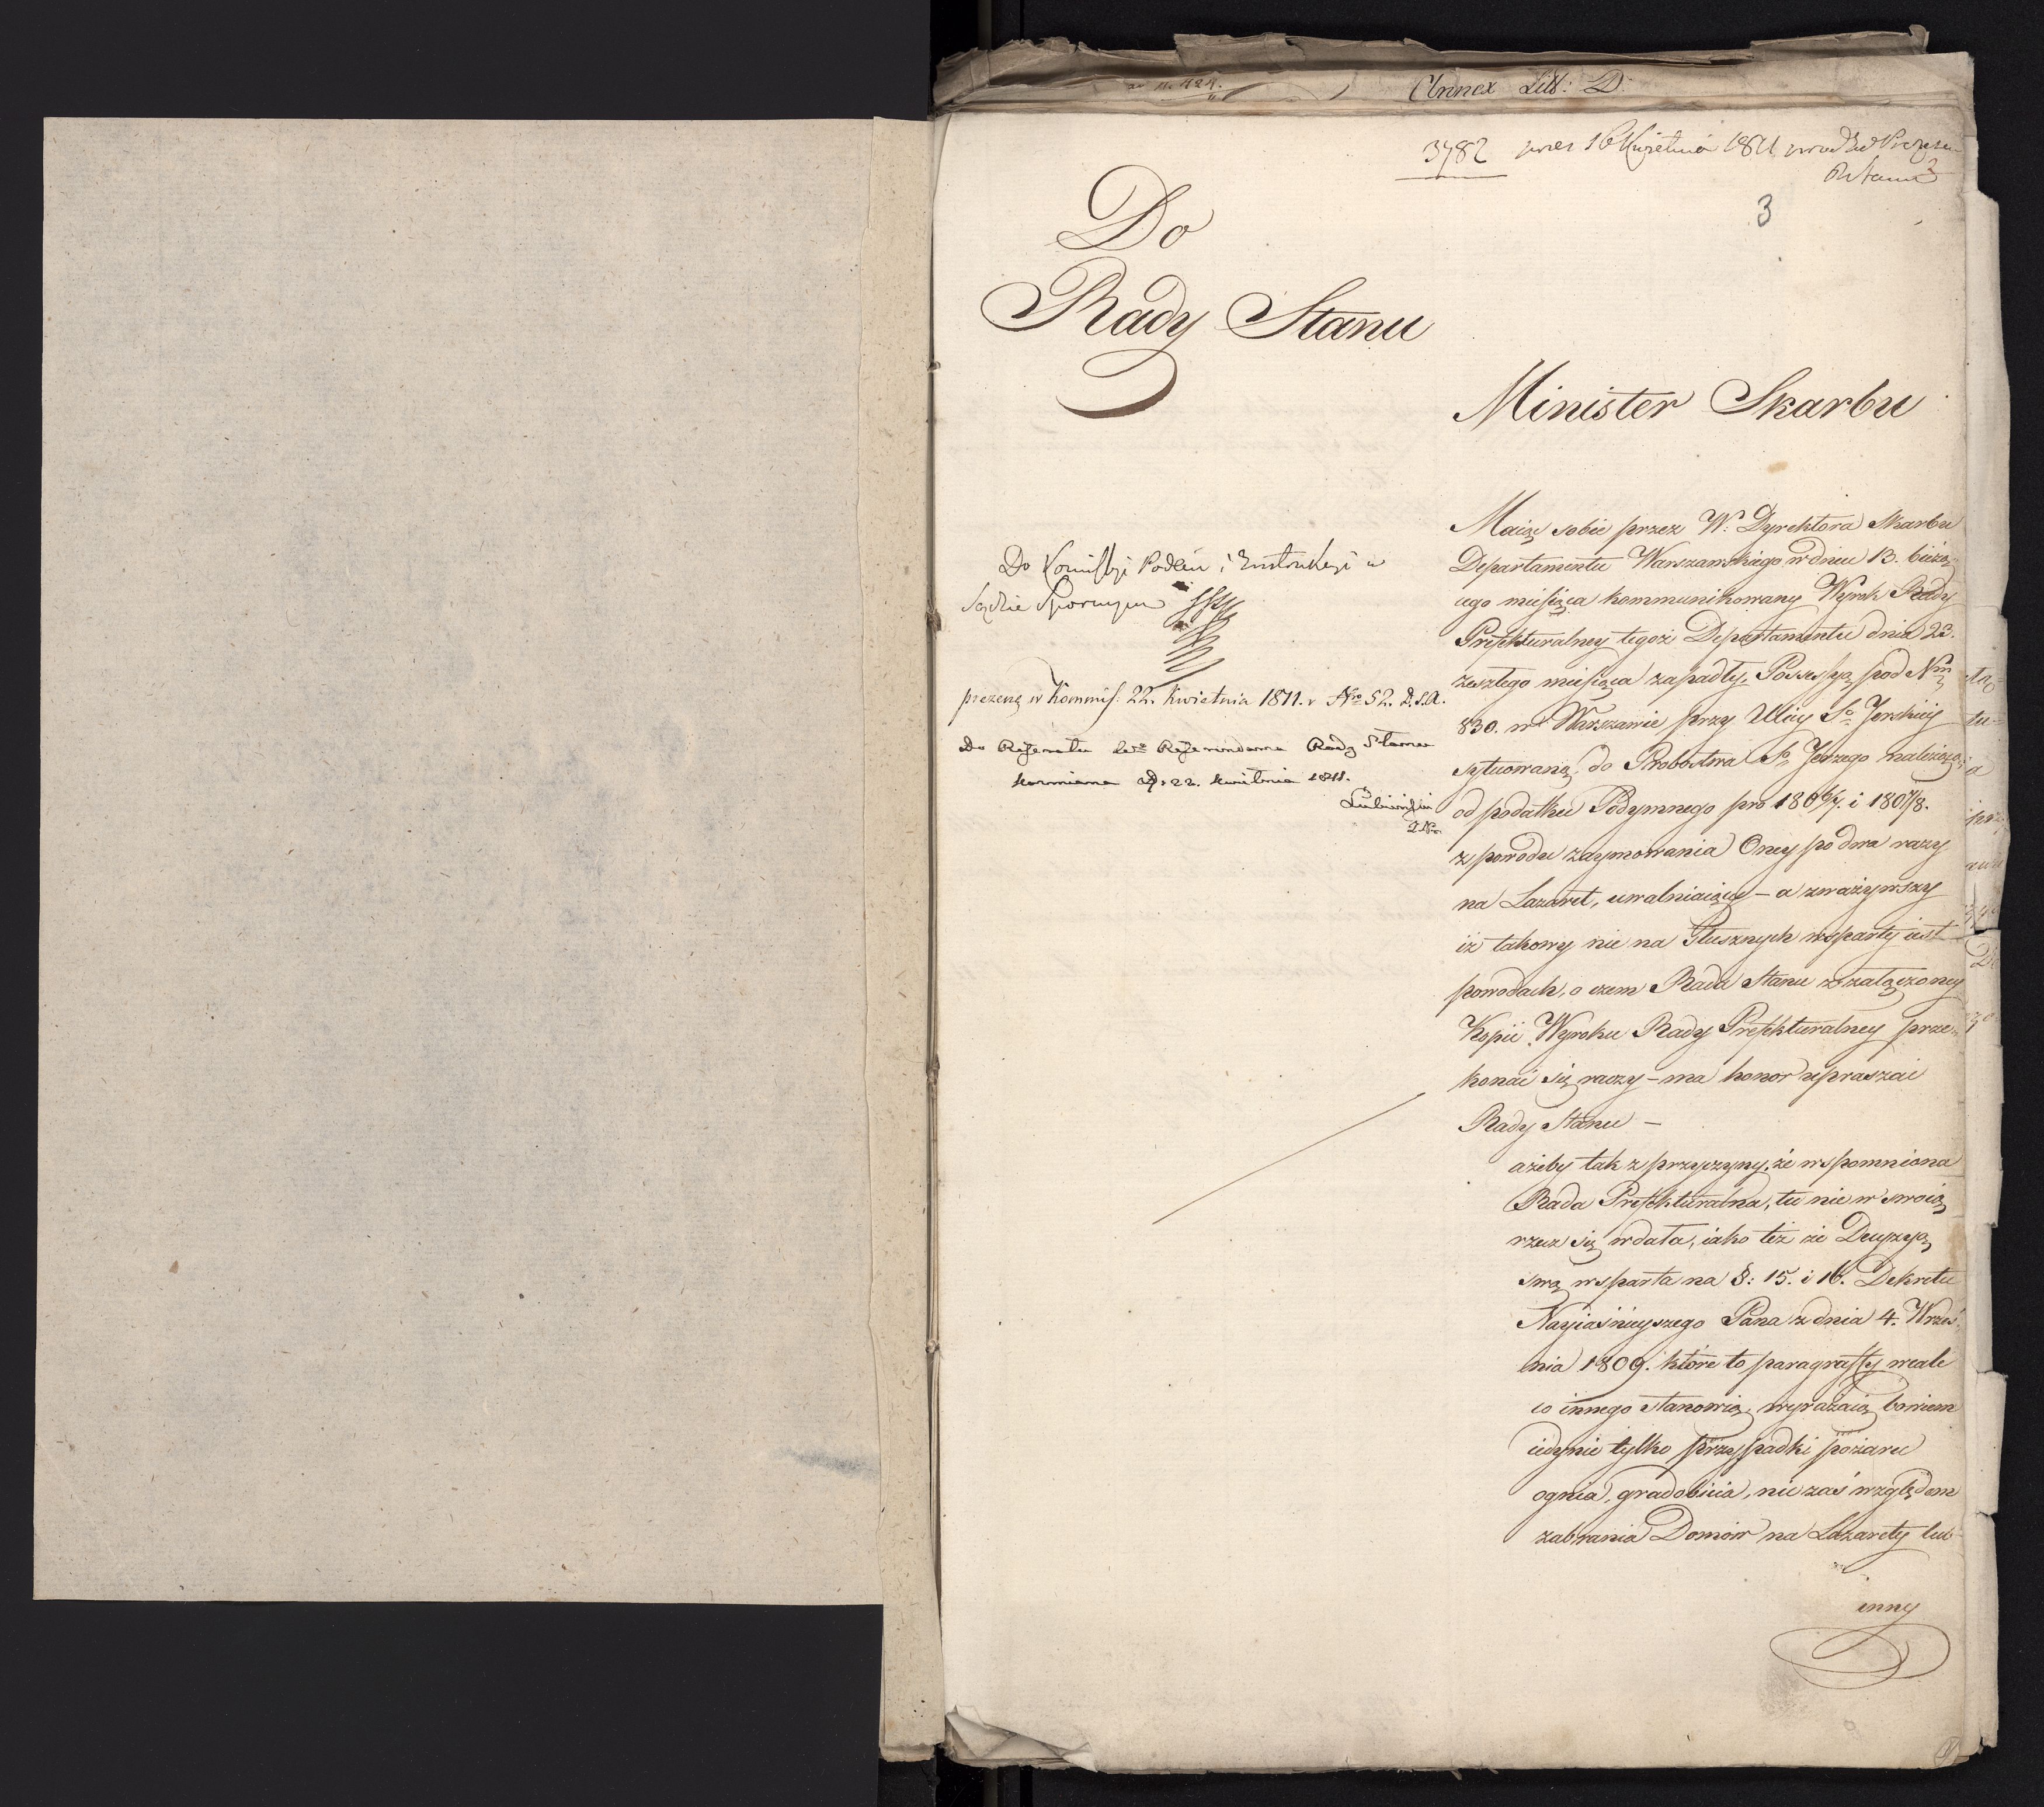 ad N. 424.
Annex Litt: D:
3782 prez 16 Kwietnia 1811
3
Do
Rady Stanu
Minister Skarbu
Do Kommissyi Podań i Instrukcyi w
Sądzie Spornym
prezent: w Kommis: 22. Kwietnia 1811. r N<sup>ro</sup> 52. D.S.A.
Do Referatu Referendarza Rady Stanu
Koźmiana d. 22. Kwietnia 1811.
Lubieński
Maiąc sobie przez W: Dyrektora Skarbu
Departamentu Warszawskiego w dniu 13. bieżą-
cego miesiąca kommunikowany Wyrok Rady
Prefekturalney tegoż Departamentu dnia 23.
zeszłego miesiąca zapadły, Possessyą pod Nrm
830. w Warszawie przy Ulicy Sto Jerskiey
sytuowaną, do Probostwa Sgo Jerzego należącą,
od podatku Podymnego pro 1806/7. i 1807/8.
z powodu zaymowania Oney po dwa razy
na Lazaret, uwalniaiący – a zważywszy
iż takowy nie na Słusznych wsparty iest
powodach, o czem Rada Stanu z załączoney
Kopii Wyroku Rady Prefekturalney prze-
konać się raczy – ma honor upraszać
Rady Stanu –
ażeby tak z przyczyny, że wspomniona
Rada Prefekturalna, tu nie w swoią
rzecz się wdała, iako też że Decyzyą
swą wsparła na §: 15. i 16. Dekretu
Nayiaśnieyszego Pana z dnia 4. Wrześ-
nia 1809. które to paragraffy wcale
co innego stanowią, wyrażaią bowiem
iedynie tylko przypadki pożaru
ognia, gradobicia, nie zaś względem
zabrania Domów na Lazarety lub
inny